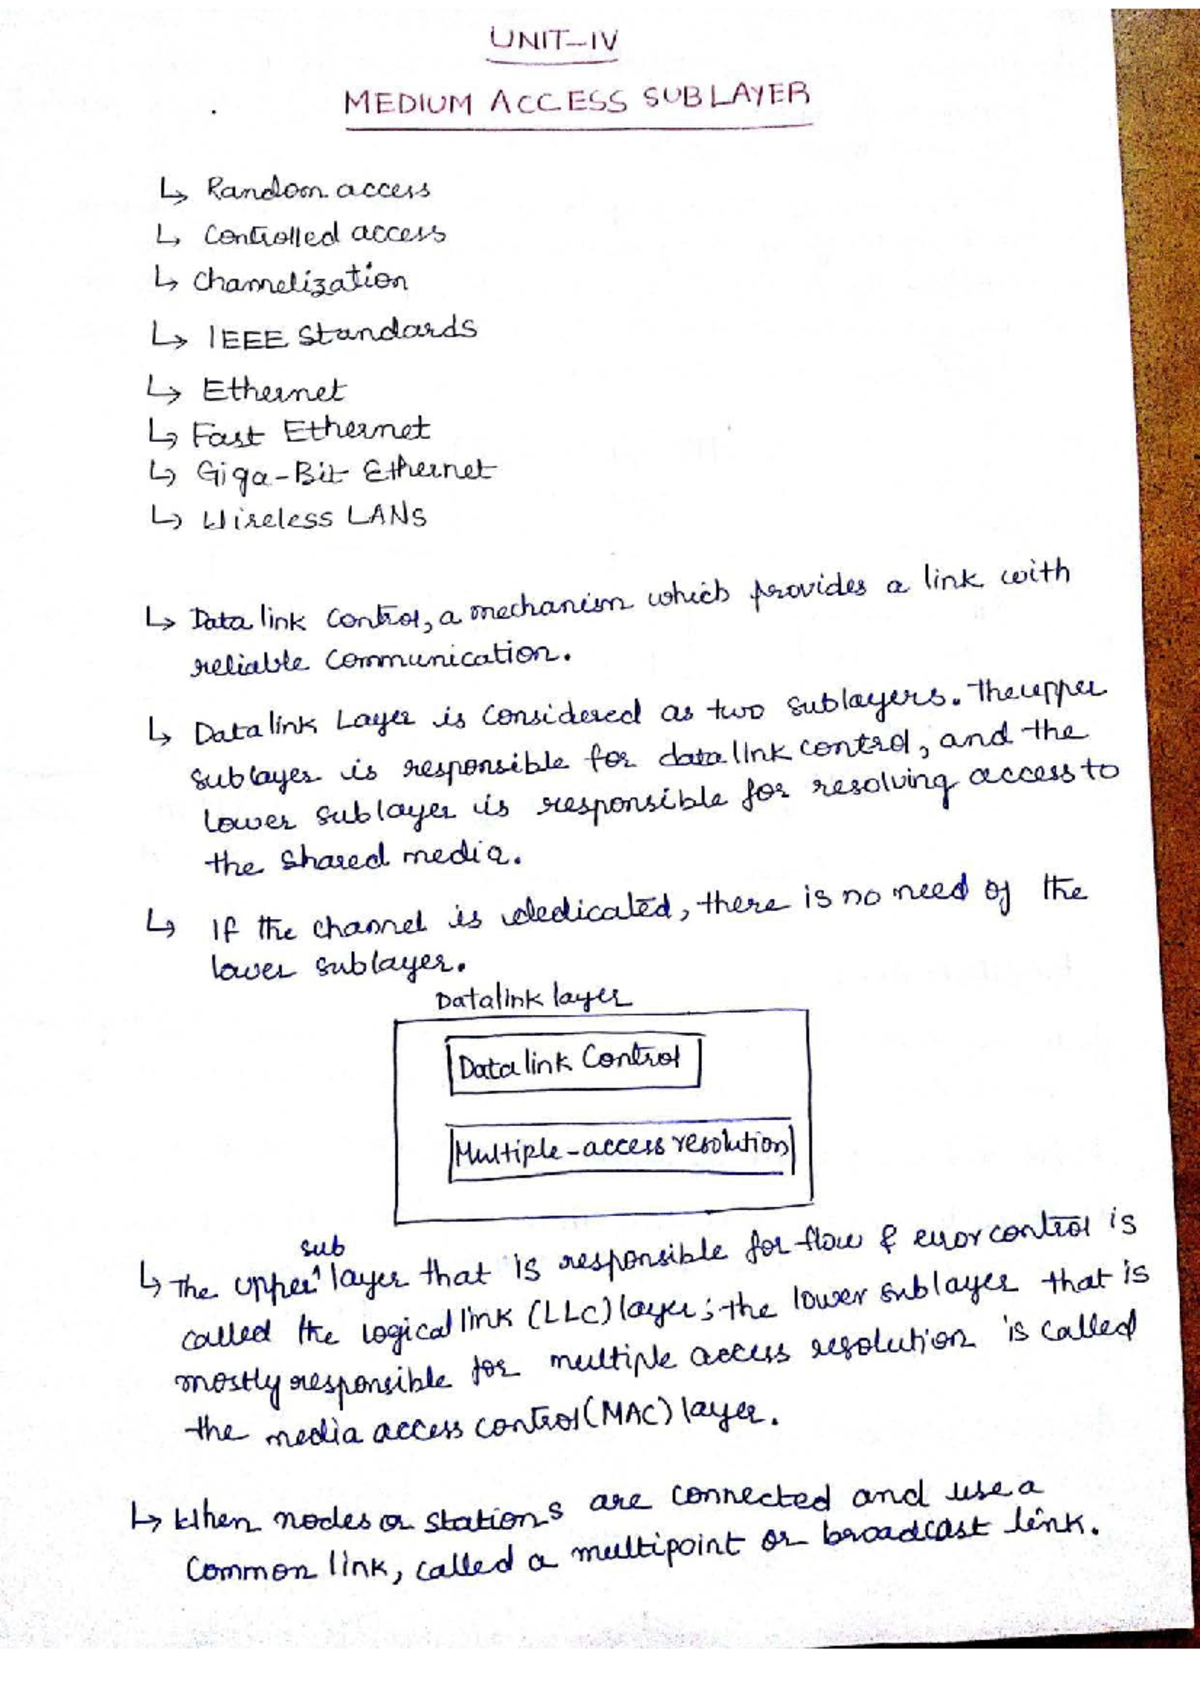 UNIT-IV
MEDIUM ACCESS SUBLAYER
↳ Random access
↳ Controlled access
↳ Channelization
↳ IEEE Standards
↳ Ethernet
↳ Fast Ethernet
↳ Giga-Bit Ethernet
↳ Wireless LANs
↳ Data link Control, a mechanism which provides a link with
reliable communication.
↳ Datalink Layer is considered as two sublayers. The upper
sublayer is responsible for data link control, and the
lower sublayer is responsible for resolving access to
the shared media.
↳ If the channel is dedicated, there is no need of the
lower sublayer.
Datalink layer
Data link Control
Multiple-access resolution
sub
↳ The upper^layer that is responsible for flow & error control is
called the logical link (LLC) layer; the lower sublayer that is
mostly responsible for multiple access resolution is called
the media access control (MAC) layer.
↳ When nodes or stations are connected and use a
Common link, called a multipoint or broadcast link.